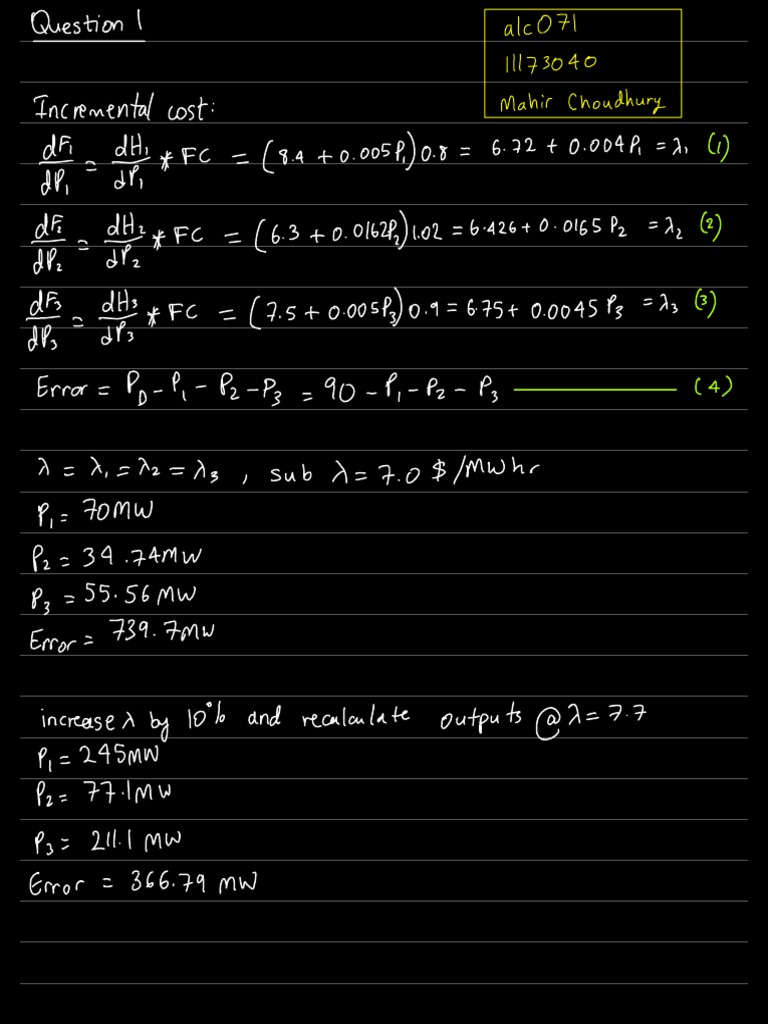 Question 1
alc071
11173040
Mahir Choudhury
Incremental cost:
dF₁/dP₁ = dH₁/dP₁ * FC = (8.4 + 0.005P₁)0.8 = 6.72 + 0.004P₁ = λ₁ (1)
dF₂/dP₂ = dH₂/dP₂ * FC = (6.3 + 0.0162P₂)1.02 = 6.426 + 0.0165 P₂ = λ₂ (2)
dF₃/dP₃ = dH₃/dP₃ * FC = (7.5 + 0.005P₃)0.9 = 6.75 + 0.0045 P₃ = λ₃ (3)
Error = P_D - P₁ - P₂ - P₃ = 90 - P₁ - P₂ - P₃ (4)
λ = λ₁ = λ₂ = λ₃ , sub λ = 7.0 $/MWhr
P₁ = 70MW
P₂ = 34.74MW
P₃ = 55.56 MW
Error = 739.7MW
increase λ by 10% and recalculate outputs @ λ = 7.7
P₁ = 245MW
P₂ = 77.1MW
P₃ = 211.1 MW
Error = 366.79 MW